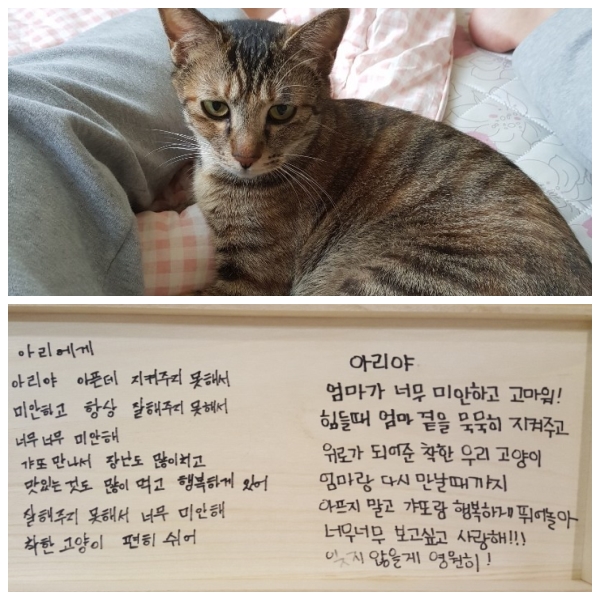 아리에게
아리야 아픈데 지켜주지 못해서
미안하고 항상 잘해주지 못해서
너무 너무 미안해
갸또 만나서 장난도 많이치고
맛있는것도 많이 먹고 행복하게 있어
잘해주지 못해서 너무 미안해
착한 고양이 편히 쉬어
아리야
엄마가 너무 미안하고 고마워!
힘들때 엄마 곁을 묵묵히 지켜주고
위로가 되어준 착한 우리 고양이
엄마랑 다시 만날때까지
아프지 말고 갸또랑 행복하게 뛰어놀아
너무너무 보고싶고 사랑해!!!
잊지 않을게 영원히!